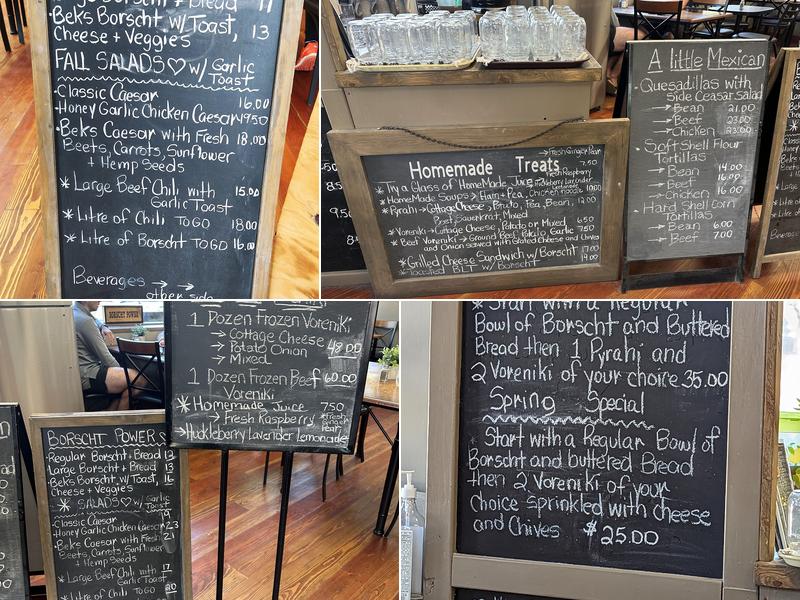 Borscht + Bread 11
• Beks Borscht w/ Toast, 13
Cheese + Veggies
FALL SALADS ♡ w/ Garlic
Toast
• Classic Caesar 16.00
• Honey Garlic Chicken Caesar 19.50
• Beks Caesar with Fresh 18.00
Beets, Carrots, Sunflower
+ Hemp Seeds
* Large Beef Chili with 15.00
Garlic Toast
* Litre of Chili TO GO 18.00
* Litre of Borscht TO GO 16.00
Beverages → →
other side
→ Fresh Ginger Pear
7.50
Homemade Treats
* Try a Glass of HomeMade Juice
Fresh Raspberry
Huckleberry Lavender
* HomeMade Soups → Ham + Pea, Chicken Noodle 10.00
* Pyrahi → Cottage Cheese, Potato, Pea, Bean, 12.00
Beef, Sauerkraut, Mixed
* Voreniki → Cottage Cheese, Potato or Mixed 6.50
* Beef Voreniki → Ground Beef, Potato, Garlic 7.50
and Onion served with Chives
* Grilled Cheese Sandwich w/ Borscht 17.00
* Toasted BLT w/ Borscht 19.00
A little Mexican
• Quesadillas with
side Ceasar Salad
→ Bean 21.00
→ Beef 23.00
→ Chicken 23.00
• Soft Shell Flour
Tortillas
→ Bean 14.00
→ Beef 16.00
→ Chicken 16.00
• Hard Shell Corn
Tortillas
→ Bean 6.00
→ Beef 7.00
BORSCHT POWER
1 Dozen Frozen Voreniki
→ Cottage Cheese
→ Potato Onion 48.00
→ Mixed
1 Dozen Frozen Beef 60.00
Voreniki
* Homemade Juice 7.50
→ Fresh Raspberry
→ Huckleberry Lavender Lemonade
BORSCHT POWER
• Regular Borscht + Bread 12
• Large Borscht + Bread 13
• Beks Borscht w/ Toast, 16
Cheese + Veggies
* SALADS ♡ w/ Garlic
Toast
• Classic Caesar 19
• Honey Garlic Chicken Caesar 23
• Beks Caesar with Fresh 21
Beets, Carrots, Sunflower
+ Hemp Seeds
* Large Beef Chili with 17
Garlic Toast
* Litre of Chili TO GO 20
* Start with a Regular
Bowl of Borscht and Buttered
Bread then 1 Pyrahi and
2 Voreniki of your choice 35.00
Spring Special
Start with a Regular Bowl of
Borscht and buttered Bread
then 2 Voreniki of your
choice sprinkled with cheese
and Chives $25.00